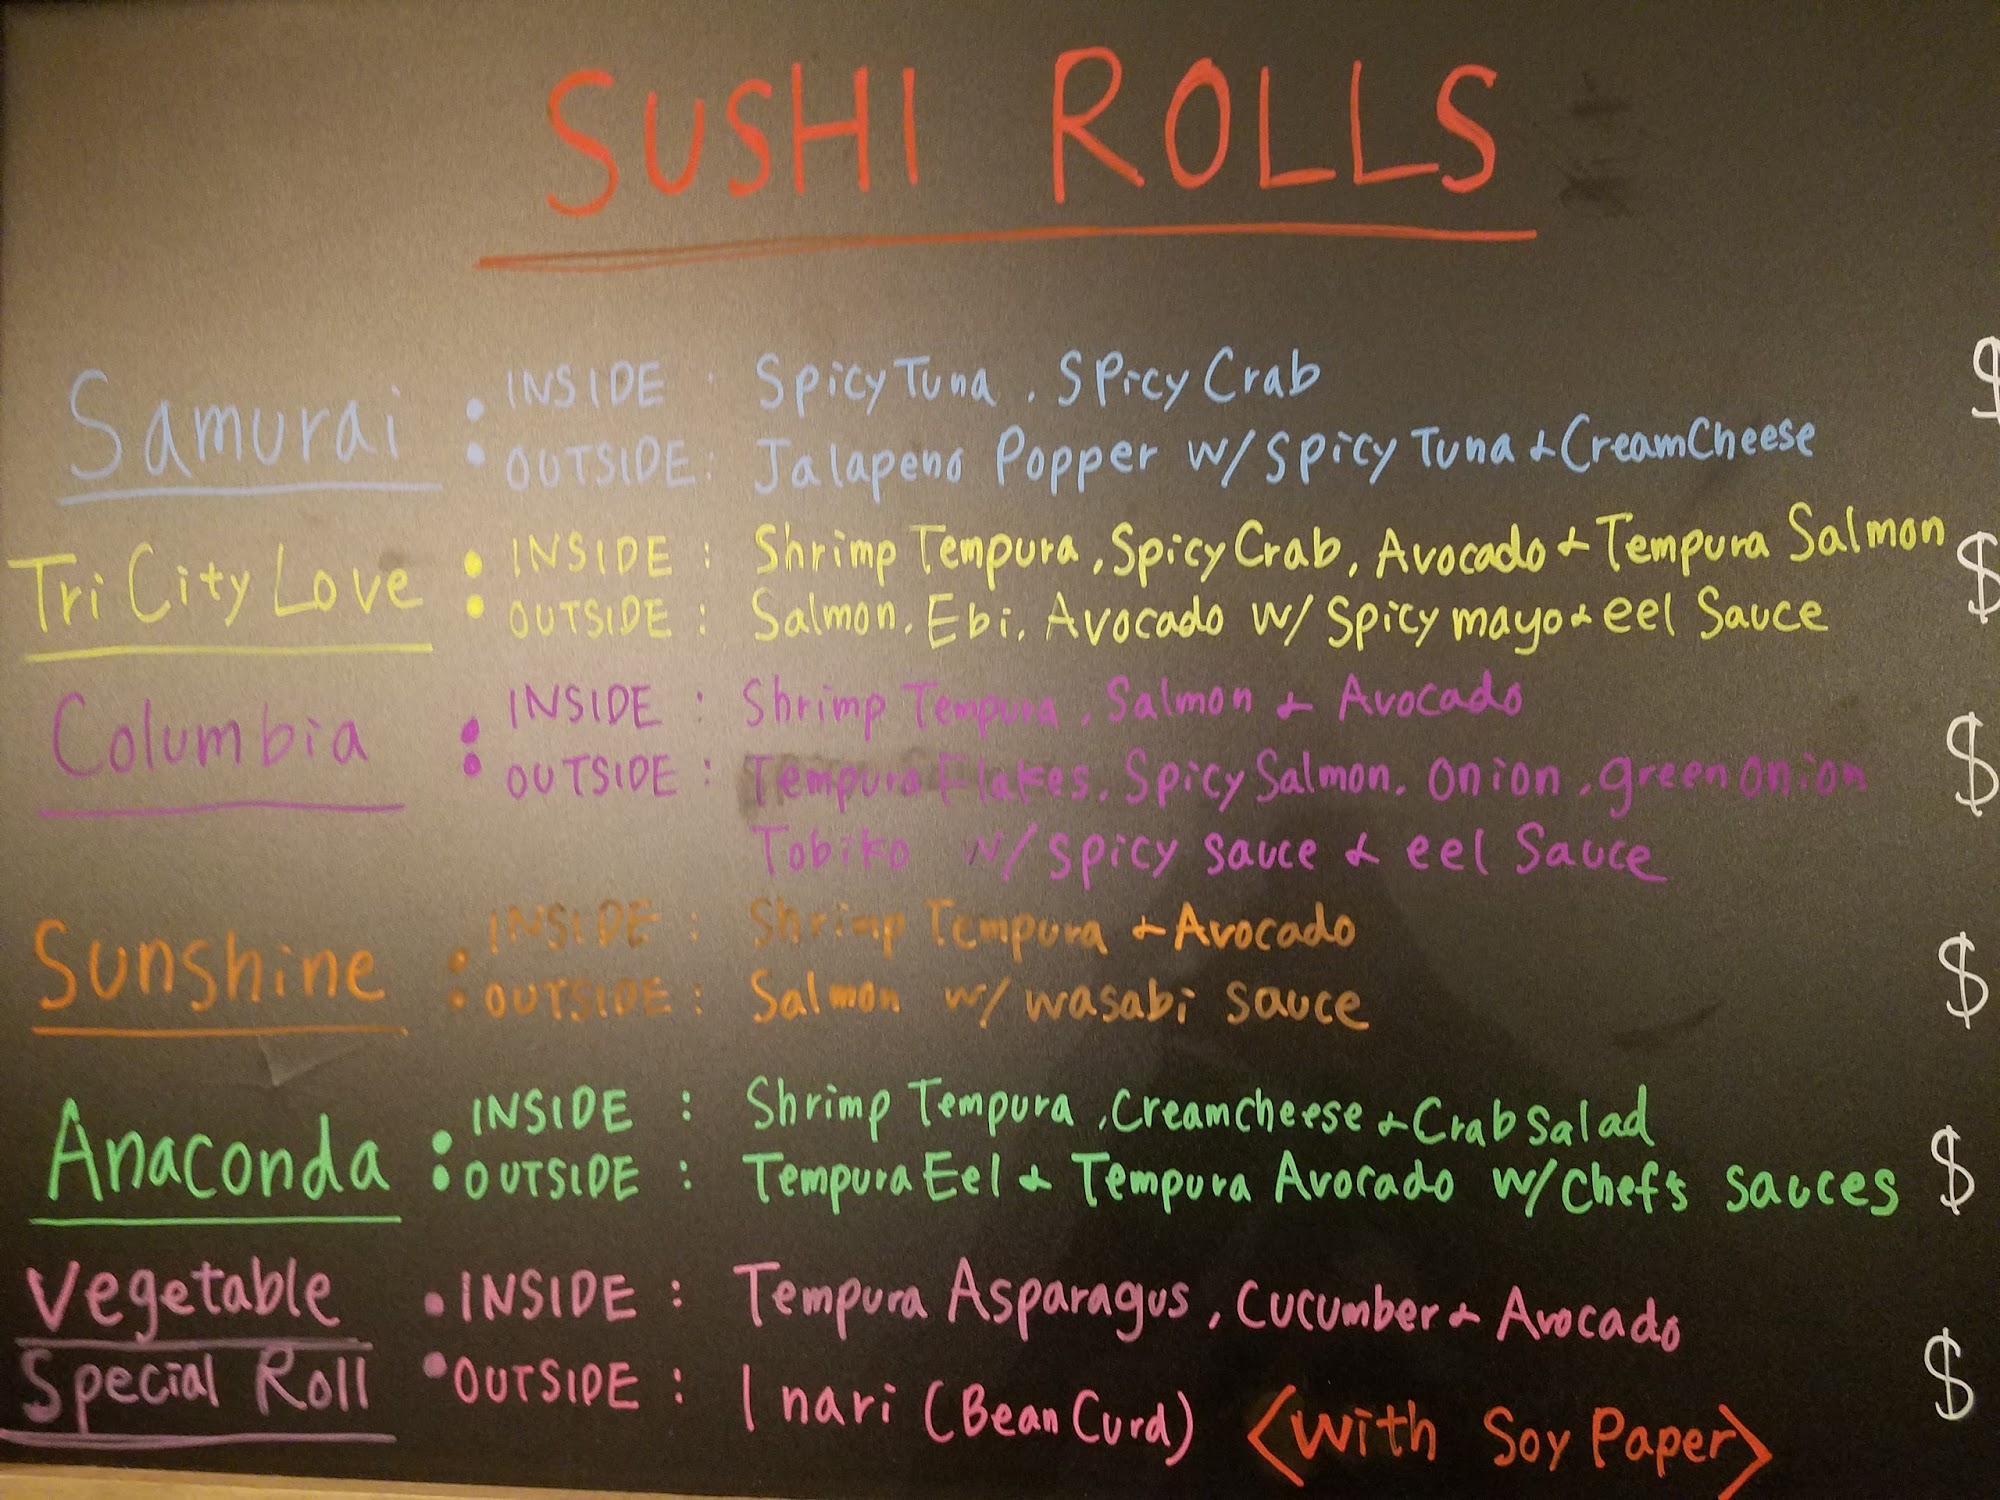 SUSHI ROLLS
Samurai • INSIDE : Spicy Tuna, Spicy Crab $
• OUTSIDE : Jalapeno Popper w/ Spicy Tuna & CreamCheese
Tri City Love • INSIDE : Shrimp Tempura, Spicy Crab, Avocado & Tempura Salmon $
• OUTSIDE : Salmon, Ebi, Avocado w/ Spicy mayo & eel Sauce
Columbia • INSIDE : Shrimp Tempura, Salmon & Avocado $
• OUTSIDE : Tempura Flakes, Spicy Salmon, Onion, green onion
Tobiko w/ spicy sauce & eel Sauce
Sunshine • INSIDE : Shrimp Tempura & Avocado $
• OUTSIDE : Salmon w/ wasabi sauce
Anaconda • INSIDE : Shrimp Tempura, Creamcheese & Crab Salad $
• OUTSIDE : Tempura Eel & Tempura Avocado w/ Chef's sauces
Vegetable • INSIDE : Tempura Asparagus, Cucumber & Avocado $
Special Roll • OUTSIDE : Inari (Bean Curd) <With Soy Paper>